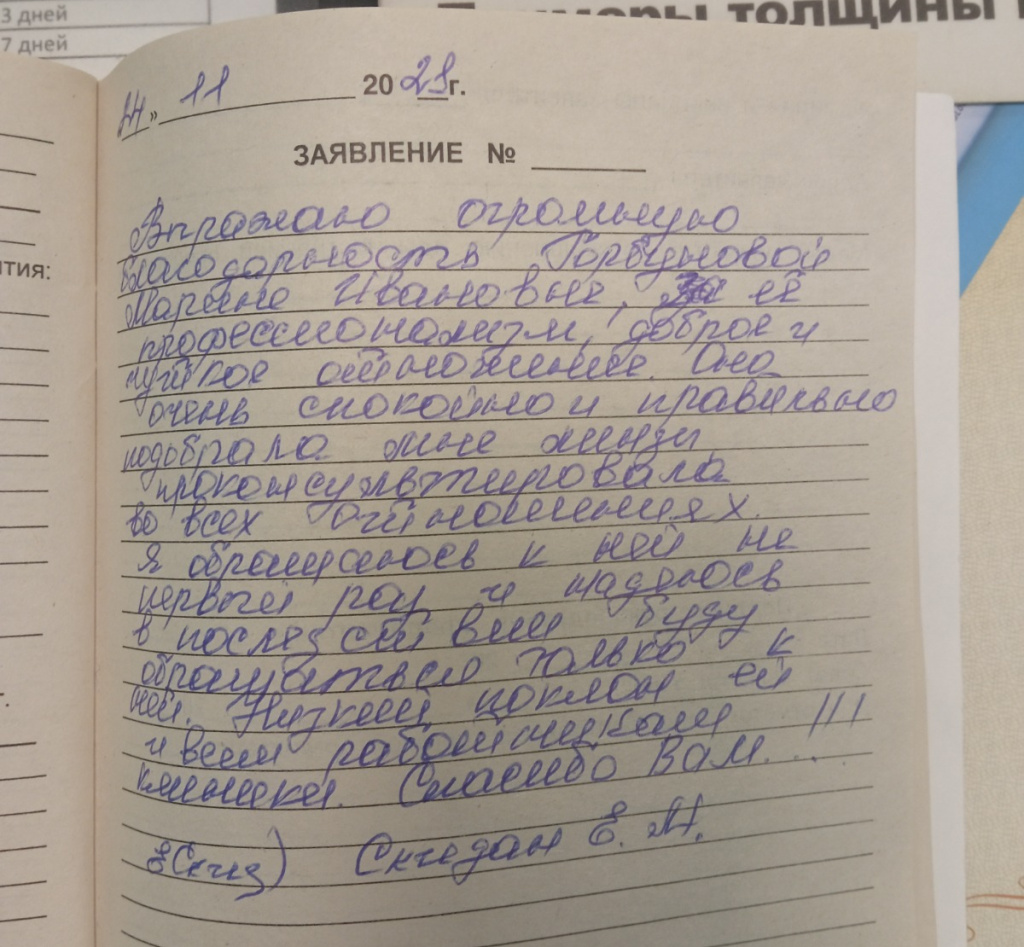 3 дней
7 дней
Примеры толщины
тия:
24 » 11 2021г.
ЗАЯВЛЕНИЕ №
Выражаю огромную
благодарность Горбуновой
Марине Ивановне, за её
профессионализм, доброе и
чуткое отношение. Она
очень спокойно и правильно
подобрала мне линзы,
проконсультировала
во всех отношениях.
Я обращаюсь к ней не
первый раз и надеюсь
в последствии буду
обращаться только к
ней. Низкий поклон ей
и всем работникам
клиники. Спасибо Вам...!!!
Е. М.